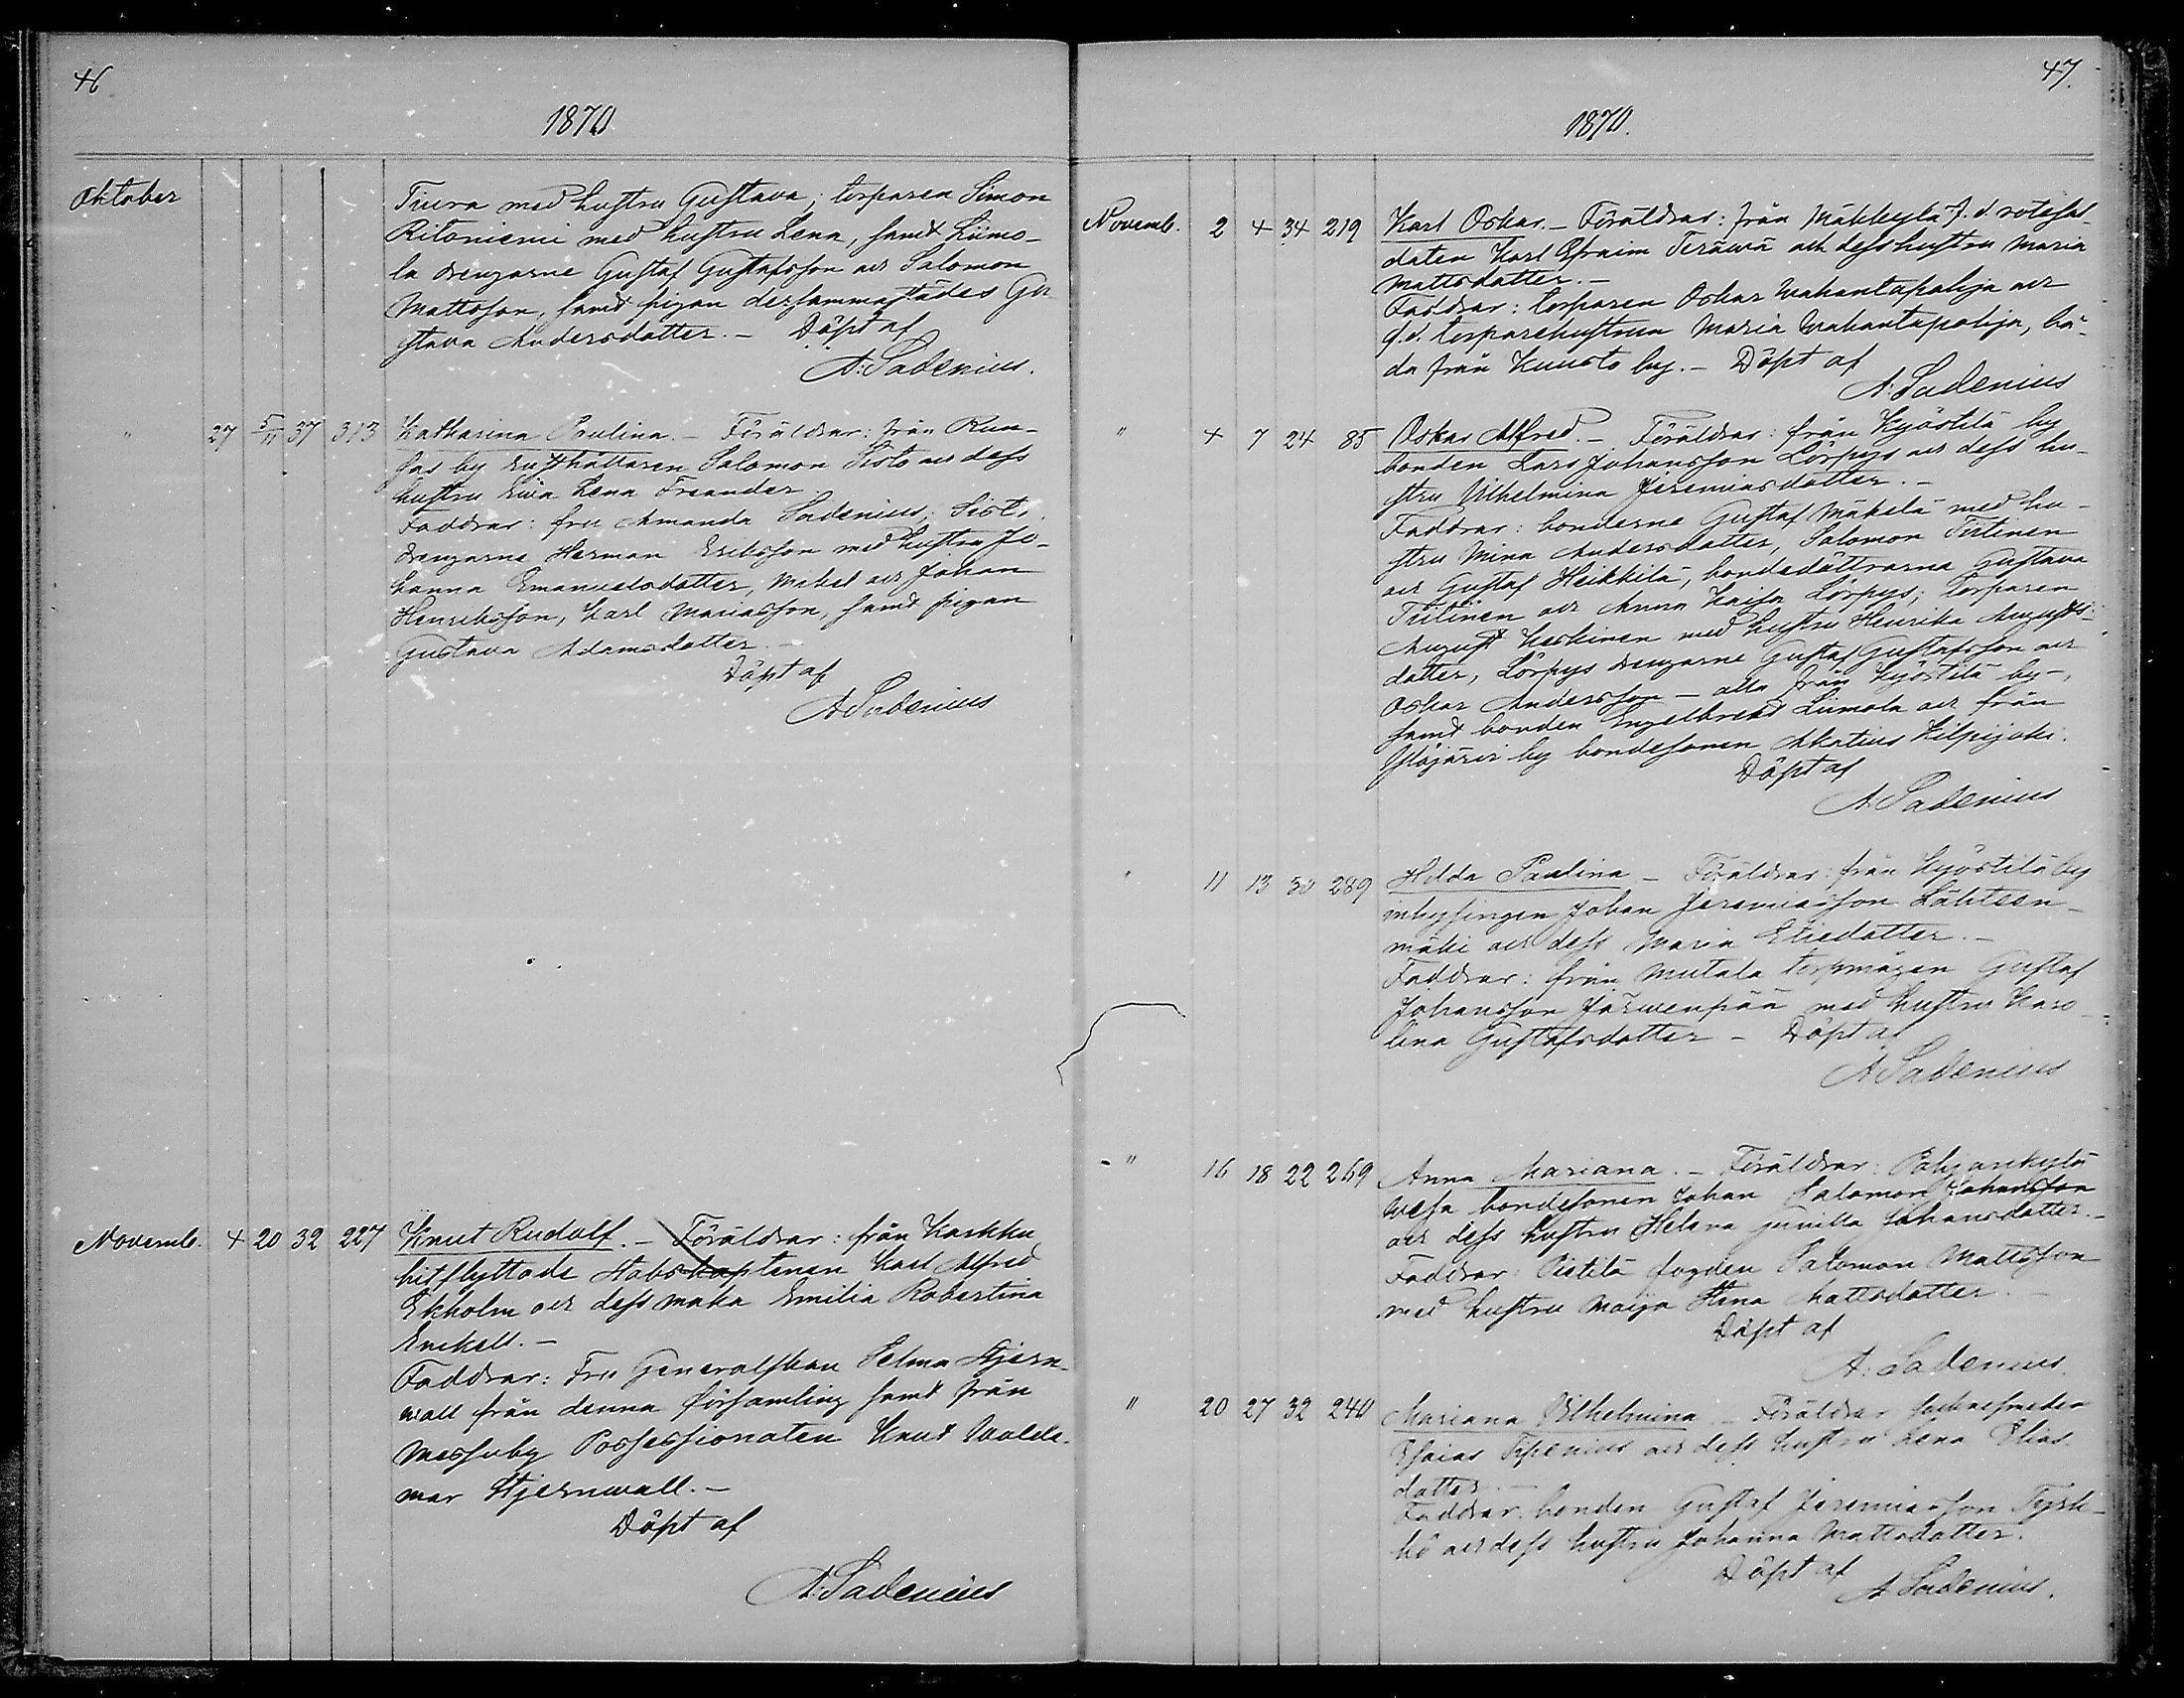 46
1870
Oktober
Tiura med hustru Gustava; torparen Simon
Ritoniemi med hustru Lena, samt Liimo-
la drengarne Gustaf Gustafsson och Salomon
Mattsson, samt pigan dersammastädes Gu-
stava Andersdotter. – Döpt af
A. Sadenius.
" 27 5/11 37 313 Katharina Paulina. – Föräldrar: från
by rusthållaren Salomon Sisto och dess
hustru Eva Lena Freander
Faddrar: fru Amanda Sadenius; Sisto
drengarne Herman Eriksson med hustru Jo-
hanna Emanuelsdotter, Mikel och Johan
Henriksson, Karl Mariasson, samt pigan
Gustava Adamsdotter. –
Döpt af
A Sadenius
Novemb. 4 20 32 227 Knut Rudolf. – Föräldrar: från Karkku
hitflyttade Stabskaptenen Karl Alfred
Ekholm och dess maka Emilia Robertina
Enckell. –
Faddrar: Fru Generalskan Selma Stjern-
wall från denna församling samt från
Messuby Possessionaten Knut Walde-
mar Stjernwall. –
Döpt af
A. Sadenius
47.
1870.
Novemb. 2 4 34 219 Karl Oskar. – Föräldrar: från Mäkkylä f. d. rotesol-
daten Karl Efraim Teräwä och dess hustru Maria
Mattsdotter. –
Faddrar: torparen Oskar Wahantapohja och
f. d. torparehustrun Maria Wahantapohja, bå-
da från Kunsto by. – Döpt af
A. Sadenius
" 4 7 24 85 Oskar Alfred. – Föräldrar: från Kyöstilä by
bonden Lars Johansson Lörpys och dess hu-
stru Vilhelmina Jeremiasdotter. –
Faddrar: bönderne Gustaf Mäkelä med hu-
stru Mina Andersdotter, Salomon Tiitinen
och Gustaf Heikkilä, bondedöttrarna Gustava
Tiitinen och Anna Kaisa Lörpys; torparen
August Keskinen med hustru Henrika Augusts-
dotter, Lörpys drengarne Gustaf Gustafsson och
Oskar Andersson – alla från Kyöstilä by –,
samt bonden Engelbrekt Liimola och från
Ylöjärvi by bondesonen Akatius Kilpijoki.
Döpt af
A. Sadenius
" 11 13 30 289 Hilda Paulina – Föräldrar: från Kyöstilä by
inhysingen Johan Jeremiasson Lähteen-
mäki och dess Maria Eliedotter. –
Faddrar: från Mutala torpmågen Gustaf
Johansson Järwenpää med hustru Karo-
lina Gustafsdotter – Döpt af
A Sadenius
" 16 18 22 269 Anna Mariana. – Föräldrar: Pohjankylä
Wesa bondesonen Johan Salomon Johansson
och dess hustru Helena Gunilla Johansdotter. –
Faddrar: Pietilä fogden Salomon Mattsson
med hustru Maija Stina Mattsdotter. –
Döpt af
A. Sadenius.
" 20 27 32 240 Mariana Vilhelmina. – Föräldrar socknesmeden
Esaias och dess hustru Lena Elias-
dotter. –
Faddrar: bonden Gustaf Jeremiasson Tyrk-
kö och dess hustru Johanna Mattsdotter.
Döpt af
A Sadenius.